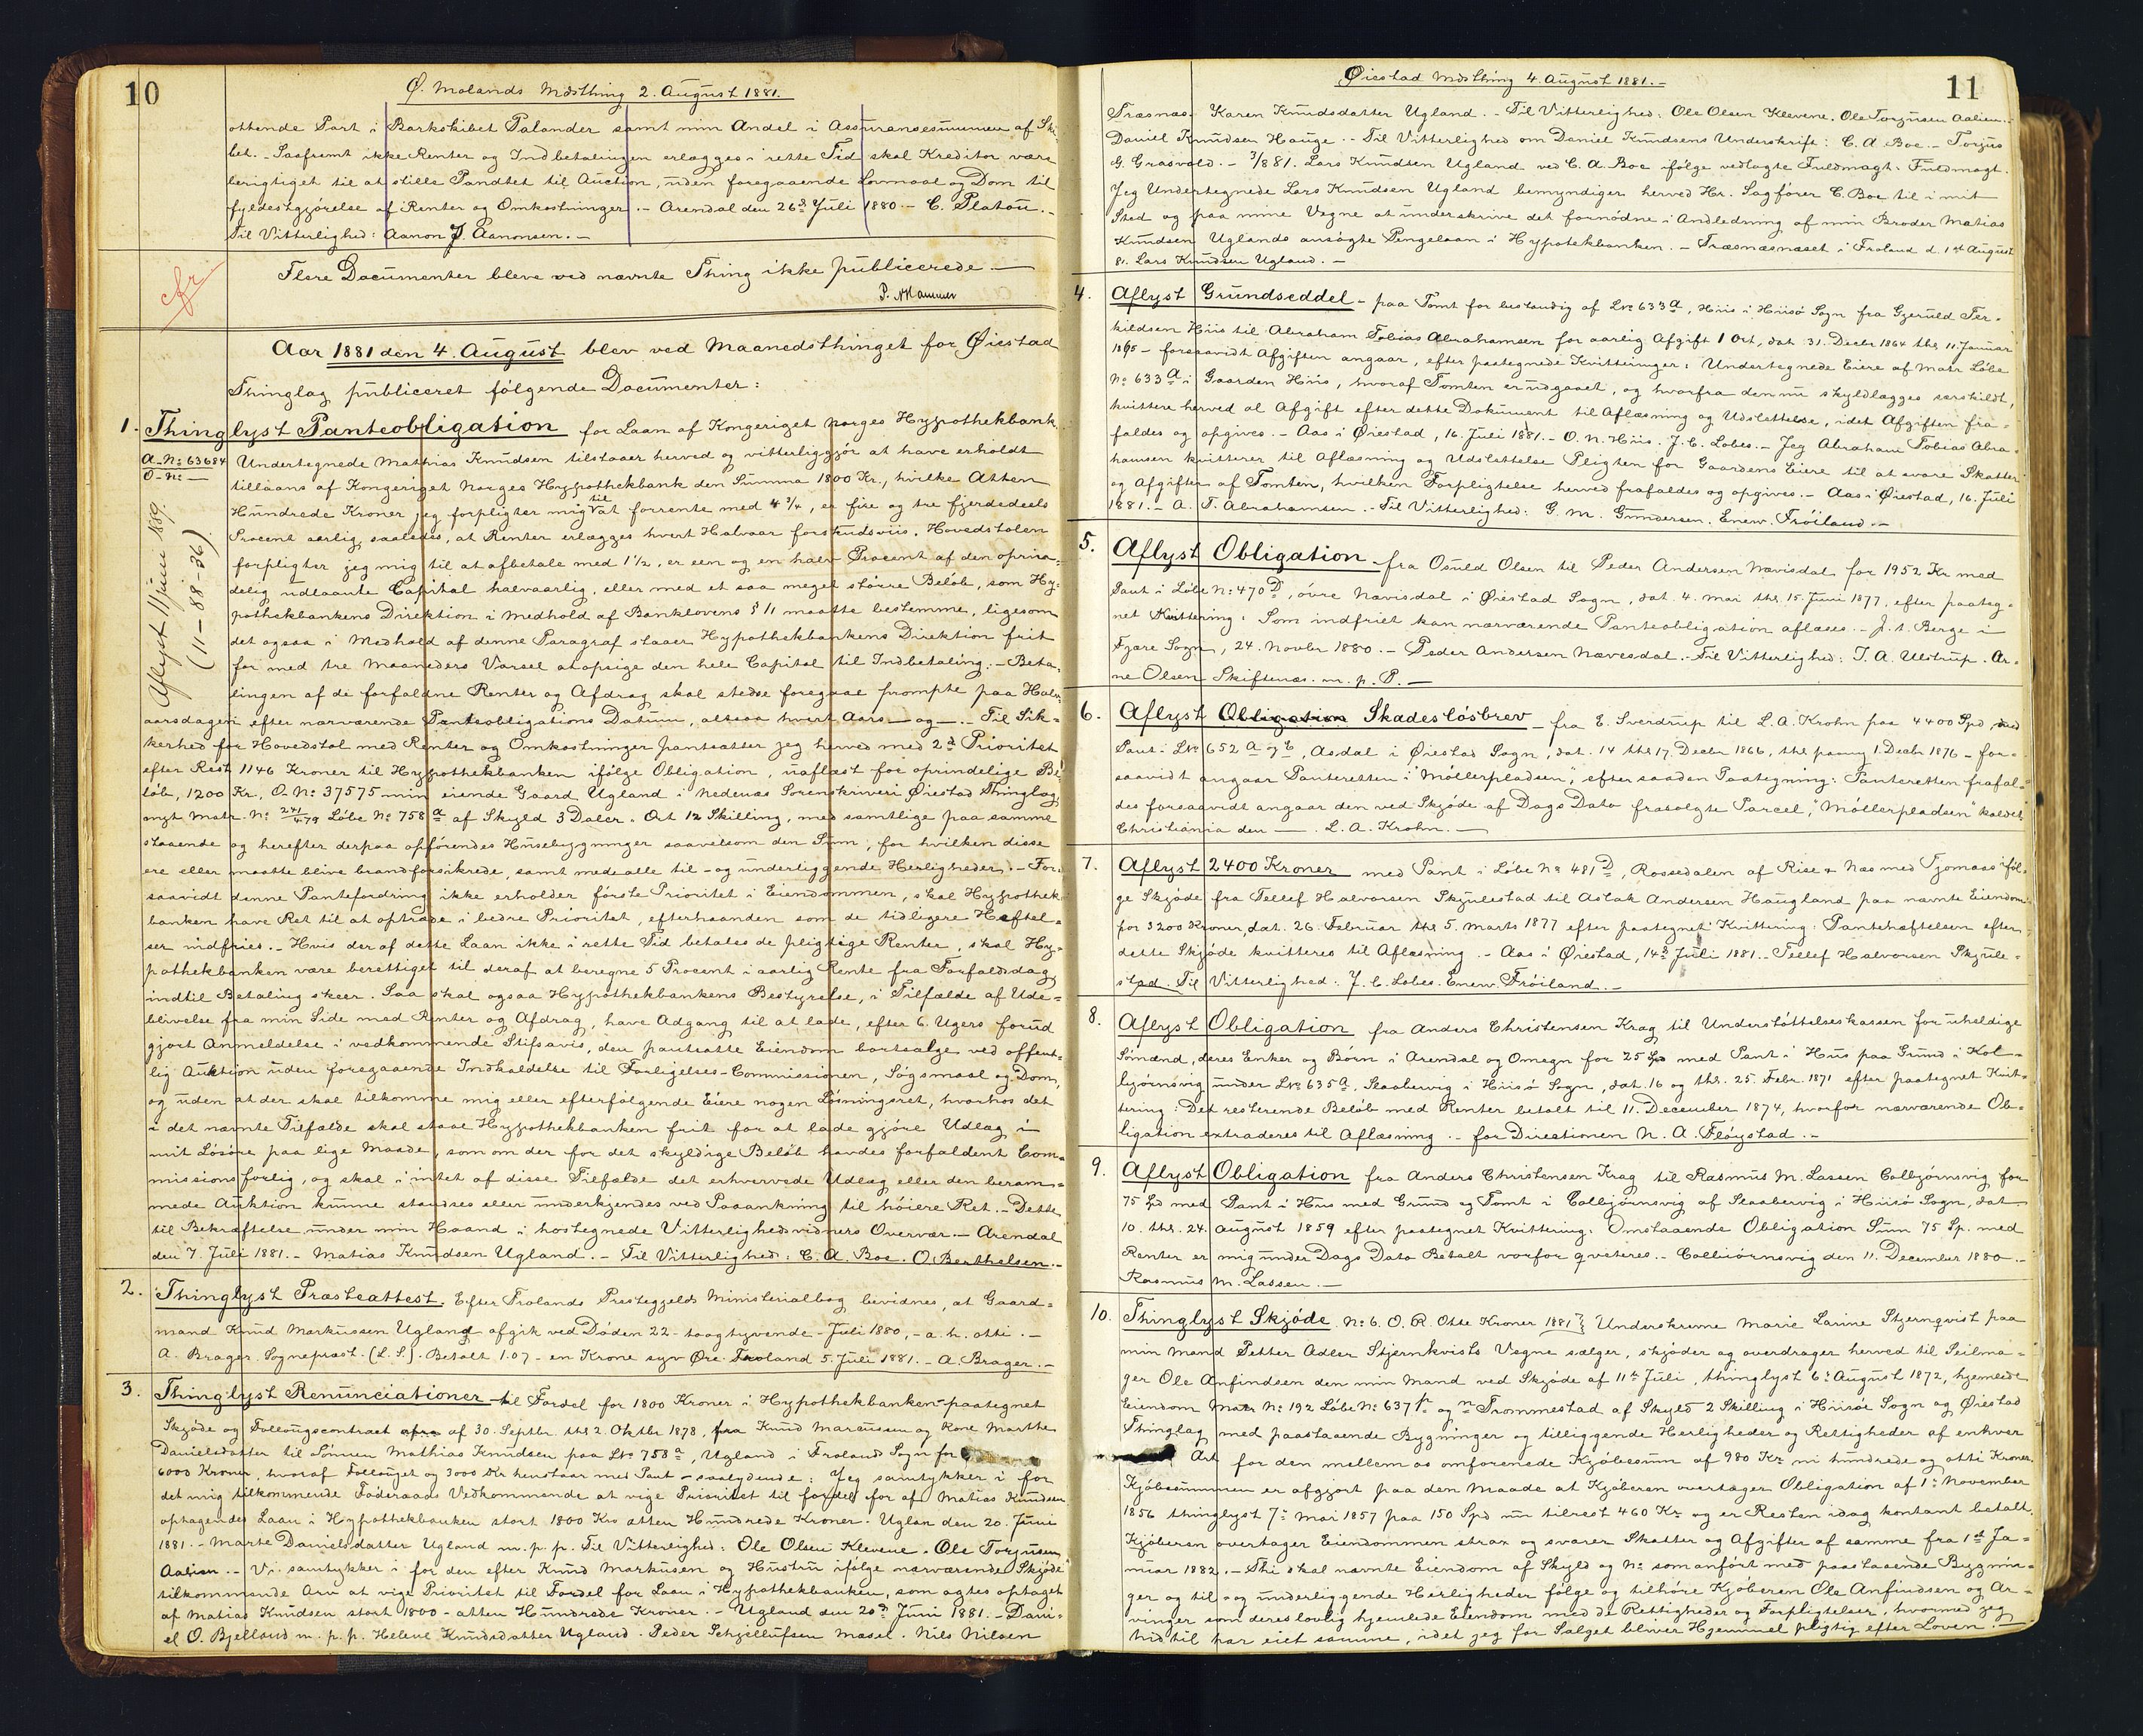 10
Ø. Molands Mdsthing 2. August 1881.
ottende Part i Barkskibet Palander samt min Andel i Assuransesummen af Ski-
bet. - Saafremt ikke Renter og Indbetalingen erlægges i rette Tid skal Kreditor være
berigtiget til at stille Pandtet til Auction, uden foregaaende Lovmaal og Dom til
fyldestgjørelse af Renter og Omkostninger. - Arendal den 26d Juli 1880. - C. Platou. -
Til Vitterlighed: Aanon J. Aanonsen. -
Flere Documenter bleve ved nævnte Thing ikke publicerede. -
cfr
P. N Hammer
Aar 1881 den 4. August blev ved Maanedsthinget for Øiestad
Thinglag publiceret følgende Documenter:
1. Thinglyst Panteobligation for Laan af Kongeriget Norges Hypothekbank.
A-No 63684 Undertegnede Mathias Knudsen tilstaaer herved og vitterliggjør at have erholdt
O-No - tillaans af Kongeriget Norges Hypothekbank den Summa 1800 Kr., hvilke Atten
Hundrede Kroner jeg forpligter mig til at forrente med 4 3/4, er fire og tre fjerdedeels
Procent aarlig saaledes, at Renter erlægges hvert Halvaar forskudsviis. Hovedstolen
forpligter jeg mig til at afbetale med 1 1/2, er een og en halv Procent af den oprin-
delig udlaante Capital halvaarlig, eller med et saa meget større Beløb, som Hy-
pothekbankens Direktion i Medhold af Banklovens § 11 maatte bestemme, ligesom
det ogsaa i Medhold af denne Paragraf staaer Hypothekbankens Direktion frit
for med tre Maaneders Varsel at opsige den hele Capital til Indbetaling. - Beta-
lingen af de forfaldne Renter og Afdrag skal stedse foregaae prompte paa Halv-
Aflyst 11 juni 1889.
(11-88-36)
aarsdagen efter nærværende Panteobligations Datum, altsaa hvert Aars - og - . - Til Sik-
kerhed for Hovedstol med Renter og Omkostninger pantsætter jeg herved med 2d Prioritet
efter Rest 1146 Kroner til Hypothekbanken ifølge Obligation, uaflæst for oprindelige Be-
løb, 1200 Kr, O. No 37575 min eiende Gaard Ugland i Nedenæs Sorenskriveri Øiestad Thinglag
nyt Matr. No 241/479 Løbe No 758 a af Skyld 3 Daler. Ort 12 Skilling, med samtlige paa samme
staaende og herefter derpaa opførendes Huusebygninger saavelsom den Sum, for hvilken disse
ere eller maatte blive brandforsikrede, samt med alle til- og underliggende Herligheder. - For-
saavidt denne Pantefordring ikke erholder første Prioritet i Eiendommen, skal Hypothek-
banken have Ret til at optræde i bedre Prioritet, efterhaanden som de tidligere Heftel-
ser indfries. - Hvis der af dette Laan ikke i rette Tid betales de pligtige Renter, skal Hy-
pothekbanken være berettiget til deraf at beregne 5 Procent i aarlig Rente fra Forfaldsdag
indtil Betaling skeer. Saa skal ogsaa Hypothekbankens Bestyrelse, i Tilfælde af Ude-
blivelse fra min Side med Renter og Afdrag, have Adgang til at lade, efter 6 Ugers forud
gjort Anmeldelse i vedkommende Stifsavis, den pantsatte Eiendom bortsælge ved offent-
lig Auktion uden foregaaende Indkaldelse til Forligelses-Commissionen, Søgsmaal og Dom,
og uden at der skal tilkomme mig eller efterfølgende Eiere nogen Løsningsret, hvorhos det
i det nævnte Tilfælde skal staae Hypothekbanken frit for at lade gjøre Udlæg i
mit Løsøre paa lige Maade, som om der for det skyldige Beløb havdes forfaldent Com-
missionsforlig, og skal i intet af disse Tilfælde det erhvervede Udlæg eller den beram-
mede Auktion kunne standses eller underkjendes ved Paaankning til høiere Ret. - Dette
til Bekræftelse under min Haand i hostegnede Vitterlighedsvidners Overvær. - Arendal
den 7. Juli 1881. - Matias Knudsen Ugland. - Til Vitterlighed: C. A. Boe. O. Berthelsen. -
2. Thinglyst Præsteattest. Efter Frolands Præstegjelds Ministerialbog bevidnes, at Gaard-
mand Knud Markussen Ugland afgik ved Døden 22 - toogtyvende - Juli 1880, - a. h. otti. -
A. Brager. Sognepræst. (L. S.). Betalt 1.07 - en Krone syv Øre. Froland 5. Juli 1881. - A. Brager. -
3. Thinglyst Renunciationer til Fordel for 1800 Kroner i Hypothekbanken - paategnet
Skjøde og Follougscontract af 30. Septbr. thl 2 Oktbr 1878, fra Knud Marcussen og Kone Marthe
Danielsdatter til Sønnen Mathias Knudsen paa LNo 758 a, Ugland i Froland Sogn for
6000 Kroner, hvoraf Follouget og 3000 Kr henstaar med Pant - saalydende: Jeg samtykker i for
det mig tilkommende Føderaads Vedkommende at vige Prioritet til fordel for af Matias Knudsen
optagendes Laan i Hypothekbanken stort 1800 Kr atten Hundrede Kroner. Uglan den 20. Juni
1881. - Marte Danielsdatter Ugland m. p. p. Til Vitterlighed: Ole Olsen Klevene. Ole Torjusen
Aalien. - Vi samtykker i for den efter Knud Markusen og Hustru ifølge nærværende Skjøde
tilkommende Arv at vige Prioritet til Fordel for Laan i Hypothekbanken, som agtes optaget
af Matias Knudsen stort 1800 - atten Hundrede Kroner. - Ugland den 20d Juni 1881. - Dani-
el O. Bjelland m. p. p. Helene Knudsdatter Ugland. Peder Schjellufsen Mæsel. Nils Nilsen
Øiestad Mdsthing 4. August 1881. -
11
Træsnæs. Karen Knudsdatter Ugland. - Til Vitterlighed: Ole Olsen Klevene. Ole Torjusen Aalien. -
Daniel Knudsen Hauge. - Til Vitterlighed om Daniel Knudsens Underskrift: C. A. Boe. - Torjus
G. Græsvold. - 3/8 81. Lars Knudsen Ugland ved C. A. Boe ifølge vedlagte Fuldmagt. Fuldmagt.
Jeg Undertegnede Lars Knudsen Ugland bemyndiger herved Hr. Sagfører C. Boe til i mit
Sted og paa mine Vegne at underskrive det fornødne i Andledning af min Broder Matias
Knudsen Uglands ansøgte Pengelaan i Hypotekbanken. - Træsnæsnæset i Froland d. 1st August
81. Lars Knudsen Ugland. -
4. Aflyst Grundseddel - paa Tomt for Lnr 633 a, Hiis i Hiisø Sogn fra Gjeruld Ter-
kildsen Hiis til Abraham Tobias Abrahamsen for aarlig Afgift 1 Ort, dat. 31. Decbr 1864 thl. 11. Januar
1865 - forsaavidt Afgiften angaar, efter paategnede Kvitteringer: Undertegnede Eiere af Matr Løbe
No 633 a i Gaarden Hiis, hvoraf Tomten er udgaaet, og hvorfra den nu skyldlægges særskildt,
kvittere herved al Afgift efter dette Dokument til Aflæsning og Udslettelse, idet Afgiften fra-
faldes og opgives. - Aas i Øiestad, 16. Juli 1881. - O. N. Hiis. J. C. Lobes. - Jeg Abraham Tobias Abra-
hamsen kvitterer til Aflæsning og Udslettelse Pligten for Gaardens Eiere til at svare Skatter
og Afgifter af Tomten, hvilken Forpligtelse herved frafaldes og opgives. - Aas i Øiestad, 16. Juli
1881. - A. T. Abrahamsen. - Til Vitterlighed: G. M. Gundersen. Enew. Frøiland. -
5. Aflyst Obligation fra Osuld Olsen til Peder Andersen Nævisdal for 1952 Kr med
Pant i Løbe No 470 D, øvre Nævisdal i Øiestad Sogn, dat. 4. Mai thl. 15. Juni 1877, efter paateg-
net Kvittering: Som indfriet kan nærværende Panteobligation aflæses. - J. t. Berge i
Fjære Sogn, 24. Novbr 1880. - Peder Andersen Nævesdal. - Til Vitterlighed: T. A. Ulstrup. Ar-
ne Olsen Skiftenæs. m. p. P. -
6. Aflyst Obligation Skadesløsbrev - fra E. Sverdrup til L. A. Krohn paa 4400 Spd, med
Pant i LNo 652 a og b, Asdal i Øiestad Sogn, dat. 14 thl 17. Decbr 1866, thl paany 1. Decbr 1876 - for-
saavidt angaar Panteretten i "Møllerpladsen", efter saadan Paategning: Panteretten frafal-
des forsaavidt angaar den ved Skjøde af Dags Dato frasolgte Parcel, "Møllerpladsen" kaldet.
Christiania den - . L. A. Krohn. -
7. Aflyst 2400 Kroner med Pant i Løbe No 481 D, Rossedalen af Rise & Næs med Tjomaas iføl-
ge Skjøde fra Tellef Halvorsen Skjulestad til Aslak Andersen Haugland paa nævnte Eiendom
for 3200 Kroner, dat. 26. Februar thl 5. Marts 1877 efter paategnet Kvittering: Pantehæftelsen efter
dette Skjøde kvitteres til Aflæsning. - Aas i Øiestad, 14d Juli 1881. - Tellef Halvorsen Skjule-
stad. Til Vitterlighed: J. C. Lobes. Enew. Frøiland. -
8. Aflyst Obligation fra Anders Christensen Krag til Understøttelseskassen for uheldige
Sømænd, deres Enker og Børn i Arendal og Omegn for 25 Spd med Pant i Hus paa Grund i Kol-
bjørnsvig under LNo 635 a, Slaabervig i Hiisø Sogn, dat. 16 og thl. 25. Febr. 1871 efter paategnet Kvit-
tering: Det resterende Beløb med Renter betalt til 11. December 1874, hvorfor nærværende Ob-
ligation extraderes til Aflæsning. - for Directionen N. A. Fløystad. -
9. Aflyst Obligation fra Anders Christensen Krag til Rasmus M. Lassen Colbjørnsvig for
75 Spd med Pant i Hus med Grund og Tomt i Colbjørnsvig af Slaabervig i Hiisø Sogn, dat.
10. thl. 24. August 1859 efter paategnet Kvittering: Omstaaende Obligation Sum 75 Sp. med
Renter er mig under Dags Dato Betalt vorfor qveteres. - Colbiørnsvig den 11. December 1880. -
Rasmus M. Lassen. -
10. Thinglyst Skjøde. No 6. O. R. Otte Kroner 1881 } Underskrevne Marie Larine Stjernqvist paa
min Mand Petter Adler Stjernkvists Vegne sælger, skjøder og overdrager herved til Seilma-
ger Ole Anfindsen den min Mand ved Skjøde af 11te Juli, thinglyst 6: August 1872, hjemlede
Eiendom Matr No 192 Løbe No 637 k og n Trommestad af Skyld 2 Skilling i Hiisøe Sogn og Øiestad
Thinglag med paastaaende Bygninger og tilliggende Herligheder og Rettigheder af enhver
Art for den mellem os omforenede Kjøbesum af 980 Kr. ni hundrede og otti Kroner.
Kjøbesummen er afgjort paa den Maade at Kjøberen overtager Obligation af 1: November
1856 thinglyst 7: Mai 1857 paa 150 Spd nu tilrest 460 Kr. og er Resten idag kontant betalt.
Kjøberen overtager Eiendommen strax og svarer Skatter og Afgifter af samme fra 1st Ja-
nuar 1882. - Thi skal nævnte Eiendom af Skyld og No som anført med paastaaende Bygnin-
ger og til- og underliggende Herligheder følge og tilhøre Kjøberen Ole Anfindsen og Ar-
vinger som deres lovlig hjemlede Eiendom med de Rettigheder og Forpligtelser, hvormed jeg
hidtil har eiet samme, idet jeg for Salget bliver Hjemmel pligtig efter Loven. -